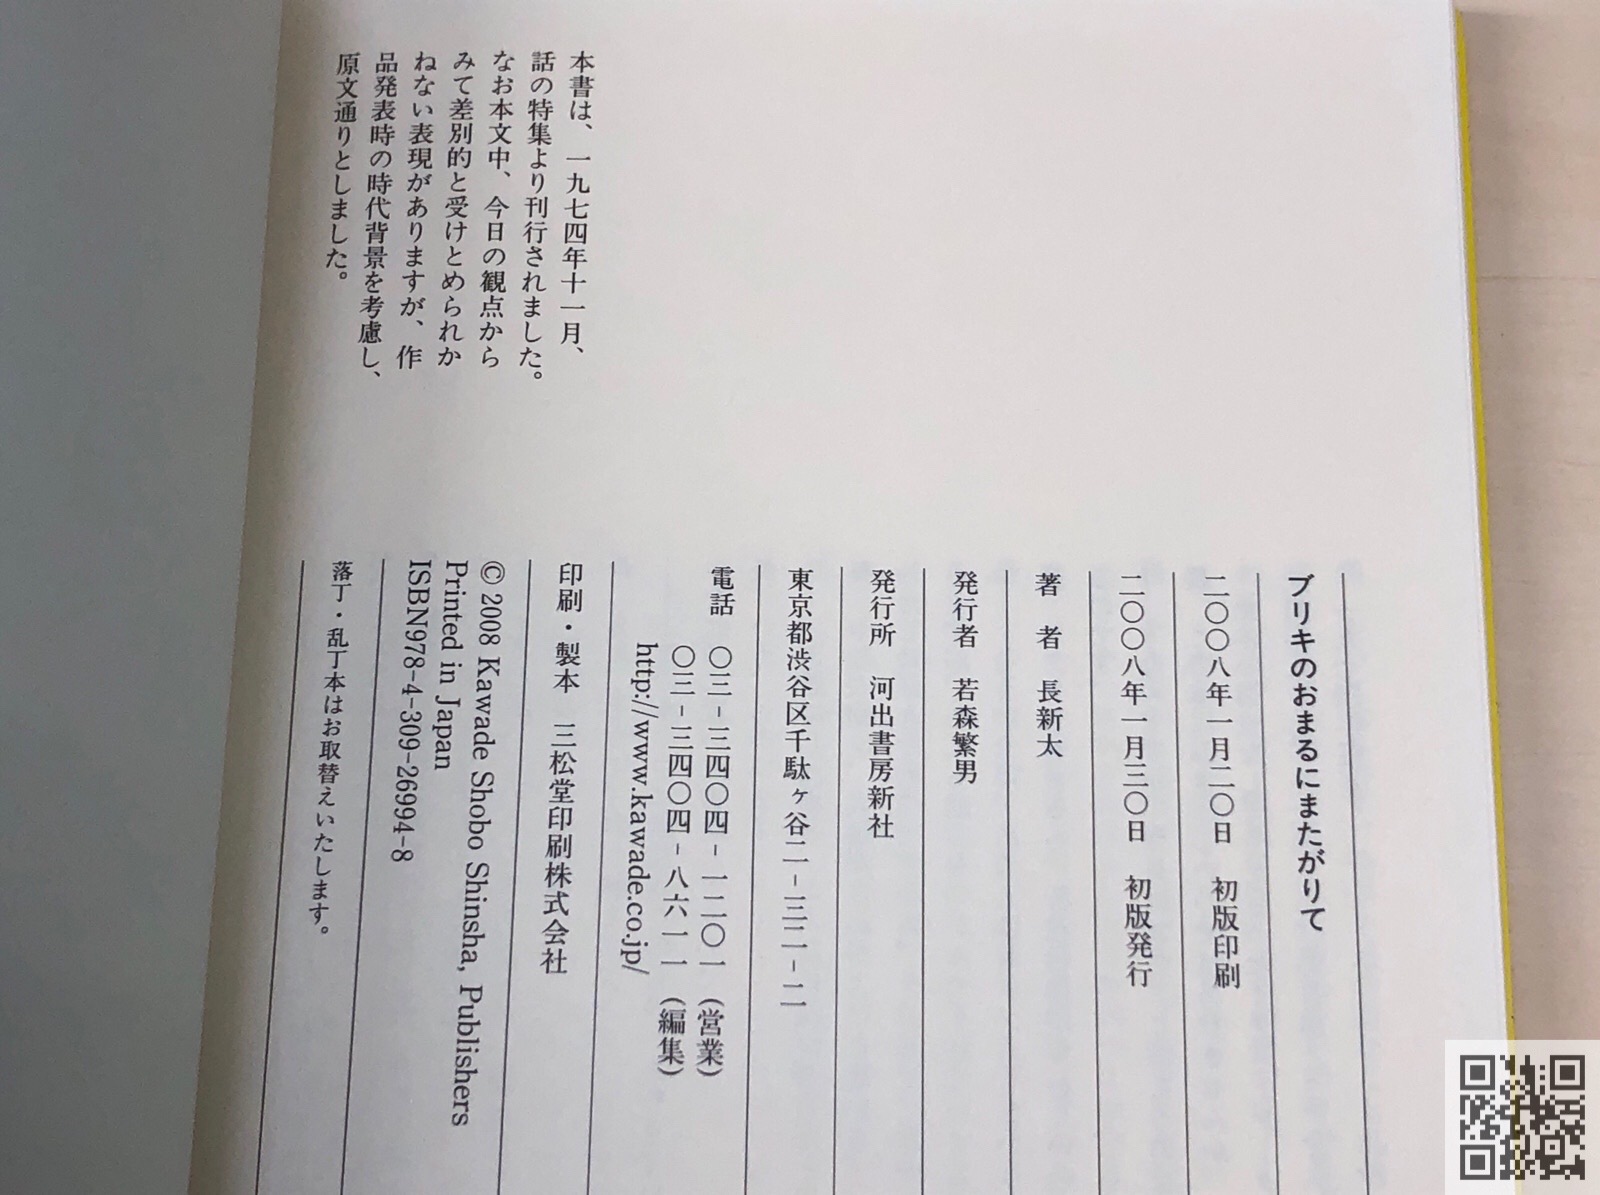 本書は、一九七四年十一月、
話の特集より刊行されました。
なお本文中、今日の観点から
みて差別的と受けとめられか
ねない表現がありますが、作
品発表時の時代背景を考慮し、
原文通りとしました。
ブリキのおまるにまたがりて
二〇〇八年一月二〇日　初版印刷
二〇〇八年一月三〇日　初版発行
著　者　長新太
発行者　若森繁男
発行所　河出書房新社
東京都渋谷区千駄ヶ谷二-三二-二
電話　〇三-三四〇四-一二〇一（営業）
〇三-三四〇四-八六一一（編集）
http://www.kawade.co.jp/
印刷・製本　三松堂印刷株式会社
© 2008 Kawade Shobo Shinsha, Publishers
Printed in Japan
ISBN978-4-309-26994-8
落丁・乱丁本はお取替えいたします。